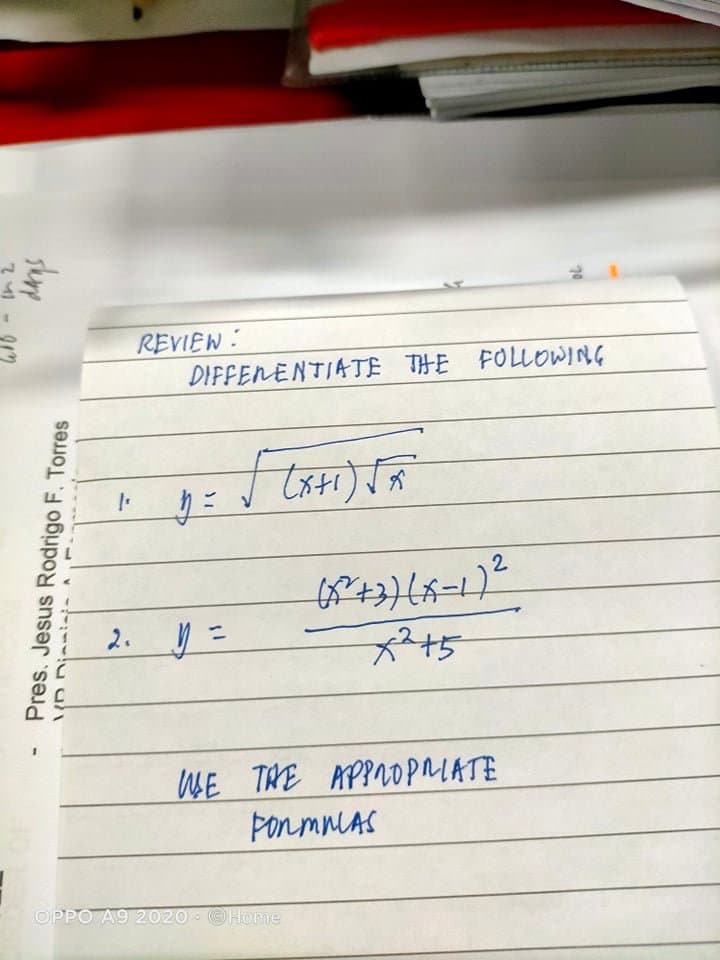 REVIEW:
DIFFERENTIATE THE FOLLOWING
1. y = √((x+1)√x)
2. y = (x²+3)(x-1)² / x²+5
USE THE APPROPRIATE
FORMULAS
- Pres. Jesus Rodrigo F. Torres
in 2
days
OPPO A9 2020 · ©Home